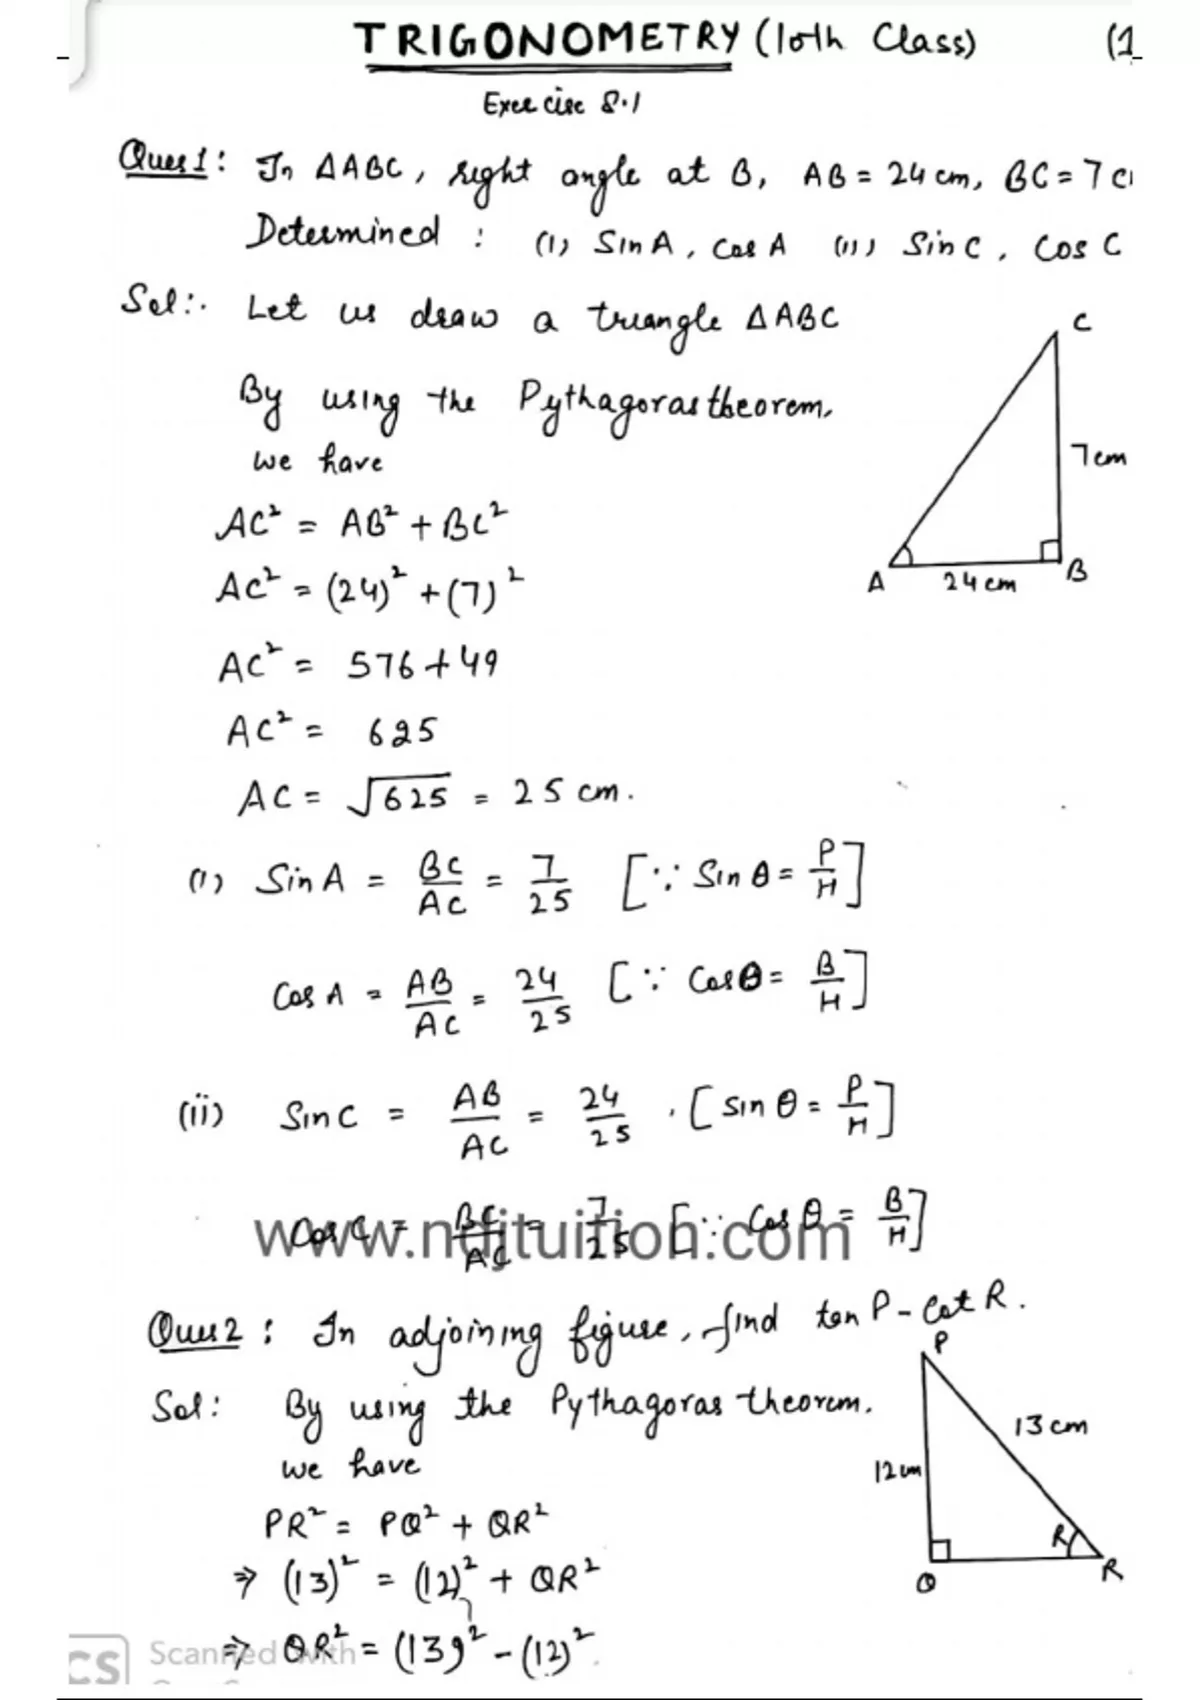 TRIGONOMETRY (10th Class) (1
Exercise 8.1
Ques 1: In ΔABC, right angle at B, AB = 24 cm, BC = 7 c
Determined : (i) Sin A, Cos A (ii) Sin C, Cos C
Sol:. Let us draw a triangle ΔABC
C
By using the Pythagoras theorem,
we have
7 cm
AC² = AB² + BC²
A 24 cm B
AC² = (24)² + (7)²
AC² = 576 + 49
AC² = 625
AC = √625 = 25 cm.
(i) Sin A = BC/AC = 7/25 [∵ Sin θ = P/H]
Cos A = AB/AC = 24/25 [∵ Cos θ = B/H]
(ii) Sin C = AB/AC = 24/25 . [Sin θ = P/H]
Cos C = BC/AC = 7/25 [∵ Cos θ = B/H]
www.ndjtuition.com
Ques 2 : In adjoining figure, find tan P - Cot R.
P
Sol: By using the Pythagoras theorem.
13 cm
we have
12 cm
PR² = PQ² + QR²
R
⇒ (13)² = (12)² + QR²
Q R
⇒ QR² = (13)² - (12)²
CS Scanned with